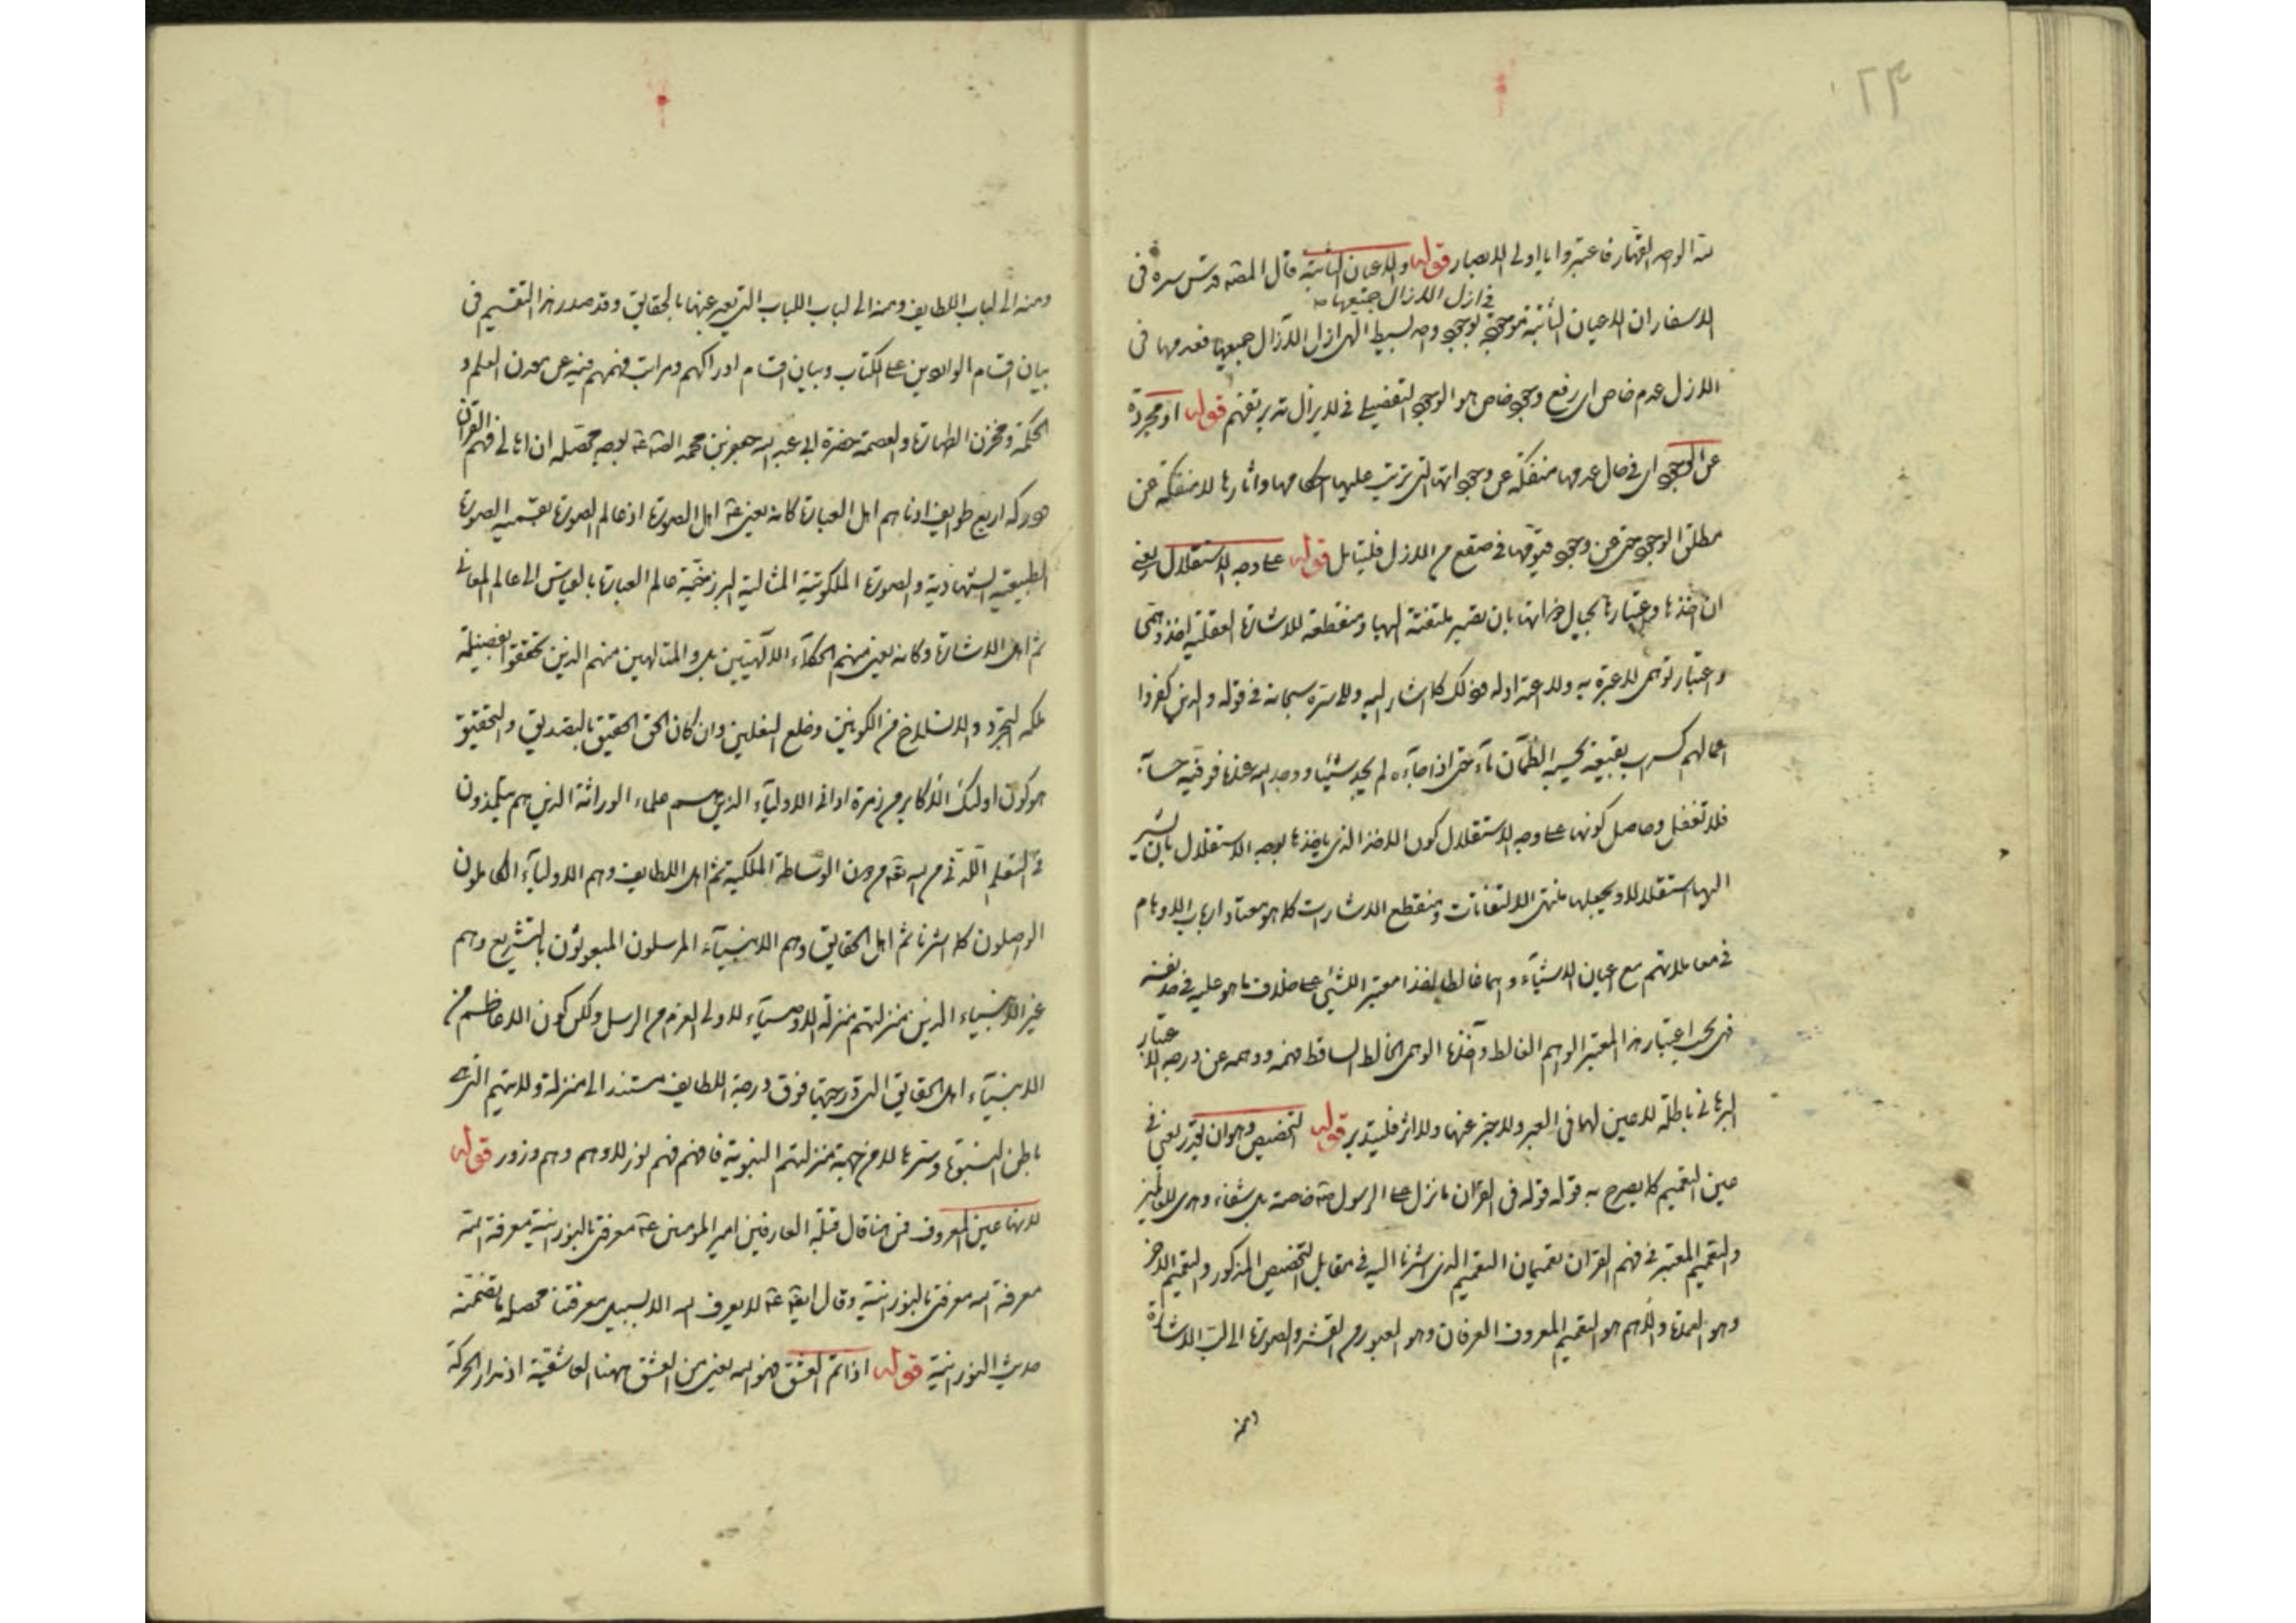 ٢٣
لله الواحد القهار فاعتبروا يا اولى الابصار قوله والاعيان الثابتة قال المصنف قدس سره فى
فى ازل الازال جميعها
الاسفار ان الاعيان الثابتة موجودة بوجود واحد بسيط الهى ازل الازال جميعها فعدمها فى
الازل عدم خاص اى رفع وجود خاص هو الوجود التفضيلى فى لايزال تدبر تفهم قوله او مجردة
عن الوجود اى فى حال عدمها منفكة عن وجوداتها التى ترتب عليها احكامها واثارها لا منفكة عن
مطلق الوجود حتى عن وجود فيوقها فى صقع من الازل فليتامل قوله على وجه الاستقلال يعنى
ان اخذها واعتبارها بحيال ذواتها بان تعتبر ملتفتة اليها ومنقطعة للاشارة العقلية اخذ وهمى
واعتبار توهمى لا عبرة به ولا عمدة له وذلك كما اشار اليه ولا ستره سبحانه فى قوله والذين كفروا
اعمالهم كسراب بقيعة يحسبه الظمآن ماء حتى اذا جاءه لم يجده شيئا ووجد الله عنده فوفيه حسابه
فلا تغفل وحاصل كونها على وجه الاستقلال كون الاخذ الذى ياخذها بوجه الاستقلال بان يشير
اليها استقلالا ويجعلها منتهى الالتفاتات ومنقطع الاشارات كما هو معتاد ارباب الاوهام
فى معاملاتهم مع اعيان الاشياء واهما غالطا لهذا معتبر الشئ على خلاف ما هو عليه فى حد نفسه
فهى بحسب اعتبار هذا المعتبر الواهم الغالط وآخذها الوهمى الخالط الساقط فهمه ووهمه عن درجة الاعتبار
البرهانى باطلة لا عين لها فى العين ولا خبر عنها ولا اثر فليتدبر قوله التخصيص وهو ان تقدر يعنى فى
عين التعميم كما يصرح به قوله قوله فى القران ما نزل على الرسول خاصة بل شفاء وهدى للعالمين
والتعميم المعتبر فى فهم القران تعميمان التعميم الذى اشرنا اليه فى مقابل التخصيص المذكور والتعميم الاخر
وهو العمدة والاهم هو التعميم المعروف العرفان وهو العبور من القشر والصورة الى لب الاشارة
ومنه
ومنه الى لباب اللطايف ومنه الى لباب اللباب التى يعبر عنها بالحقايق وقد صدر هذا التقسيم فى
بيان اقسام الواردين على الكتاب وبيان اقسام ادراكهم ومراتب فهمهم فيه عن معدن العلم و
الحكمة ومخزن الطهارة والعصمة حضرة ابى عبد الله جعفر بن محمد الصادق بوجه محصله ان اهالى فهم القران
ودركه اربع طوايف ادناهم اهل العبارة كانه يعنى اهل الصورة اذ عالم الصورة بقسميه الصورة
الطبيعية الشهادية والصورة الملكوتية المثالية البرزخية عالم العبارة بالقياس الى عالم المعانى
ثم اهل الاشارة وكانه يعنى منهم الحكماء الالهيين بل والمتالهين منهم الذين تحققوا بفضيلة
ملكة التجرد والانسلاخ من الكونين وخلع النعلين وان كان الحق الحقيق بالتصديق والتحقيق
هو كون اولئك الاكابر من زمرة ادانى الاولياء الذين هم علماء الوراثة الذين هم يتلمذون
فى التعلم اللدنى من الله من دون الوساطة الملكية ثم اهل اللطايف وهم الاولياء الكاملون
الواصلون كما اشرنا ثم اهل الحقايق وهم الانبياء المرسلون المبعوثون بالتشريع وهم
غير الانبياء الذين منزلتهم منزلة الاوصياء لاولى العزم من الرسل ولكن كون الاعاظم من
الانبياء اهل الحقايق التى درجتها فوق درجة اللطايف مستند الى منزلة ولايتهم التى هى
باطن النبوة وسرها لا من جهة منزلتهم النبوية فافهم فهم نور لا وهم وهم وزور قوله
لانها عين المعروف فمن هنا قال قبلة العارفين امير المؤمنين معرفتى بالنورانية معرفة الله
معرفة الله معرفتى بالنورانية وقال ايضا لا يعرف الله الا بسبيل معرفتنا محصل ما تضمنه
حديث النورانية قوله اذا تم العشق فهو الله يعنى من العشق ههنا العاشقية اذ مدار الحركة